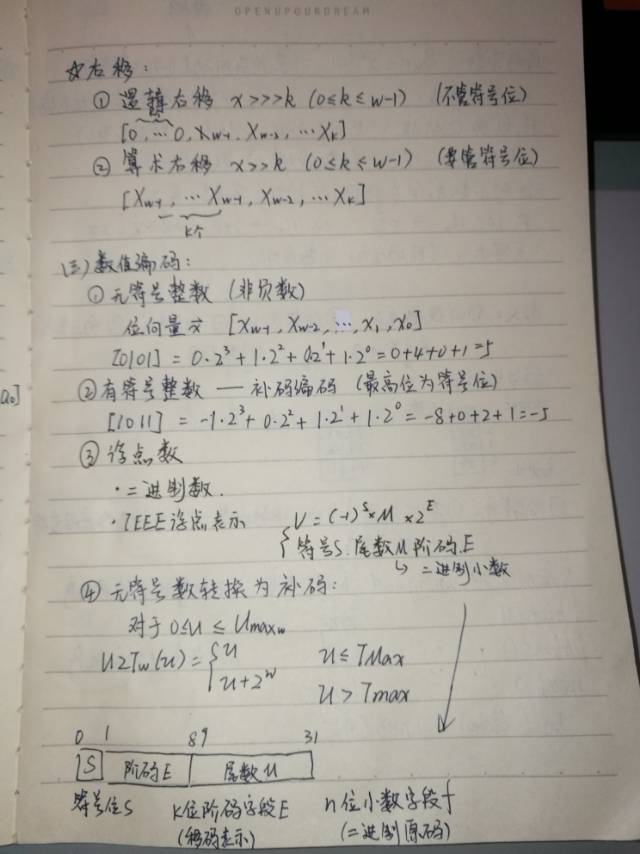 OPENUPOURDREAM
☆右移：
① 逻辑右移 x>>>k (0≤k≤w-1) (不管符号位)
[0, …0, Xw-1, Xw-2, …Xk]
② 算术右移 x>>k (0≤k≤w-1) (要管符号位)
[Xw-1, … Xw-1, Xw-2, … Xk]
k个
(三) 数值编码：
① 无符号整数 (非负数)
位向量x [Xw-1, Xw-2, …, x1, x0]
[0101] = 0·2³+1·2²+0·2¹+1·2⁰=0+4+0+1=5
② 有符号整数 — 补码编码 (最高位为符号位)
[1011] = -1·2³+0·2²+1·2¹+1·2⁰= -8+0+2+1=-5
a0]
③ 浮点数
·二进制数.
·IEEE浮点表示 V=(-1)ˢ×M×2ᴱ
{符号S.尾数M阶码E
↳ 二进制小数
④ 无符号数转换为补码：
对于0≤u≤Umaxw
U2Tw(u)={u u≤TMax
u+2ʷ u>Tmax
0 1 89 31
S 阶码E 尾数M
符号位S k位阶码字段E n位小数字段f
(移码表示) (二进制原码)